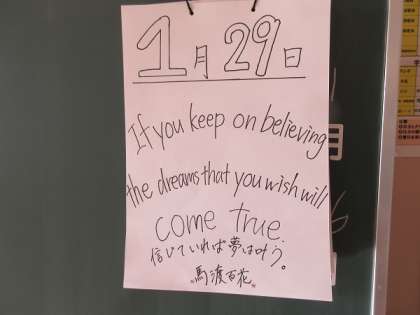 1月29日
If you keep on believing
the dreams that you wish will
come true.
信じていれば夢は叶う。
馬渡百花